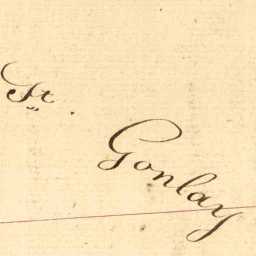 St. Gonlay